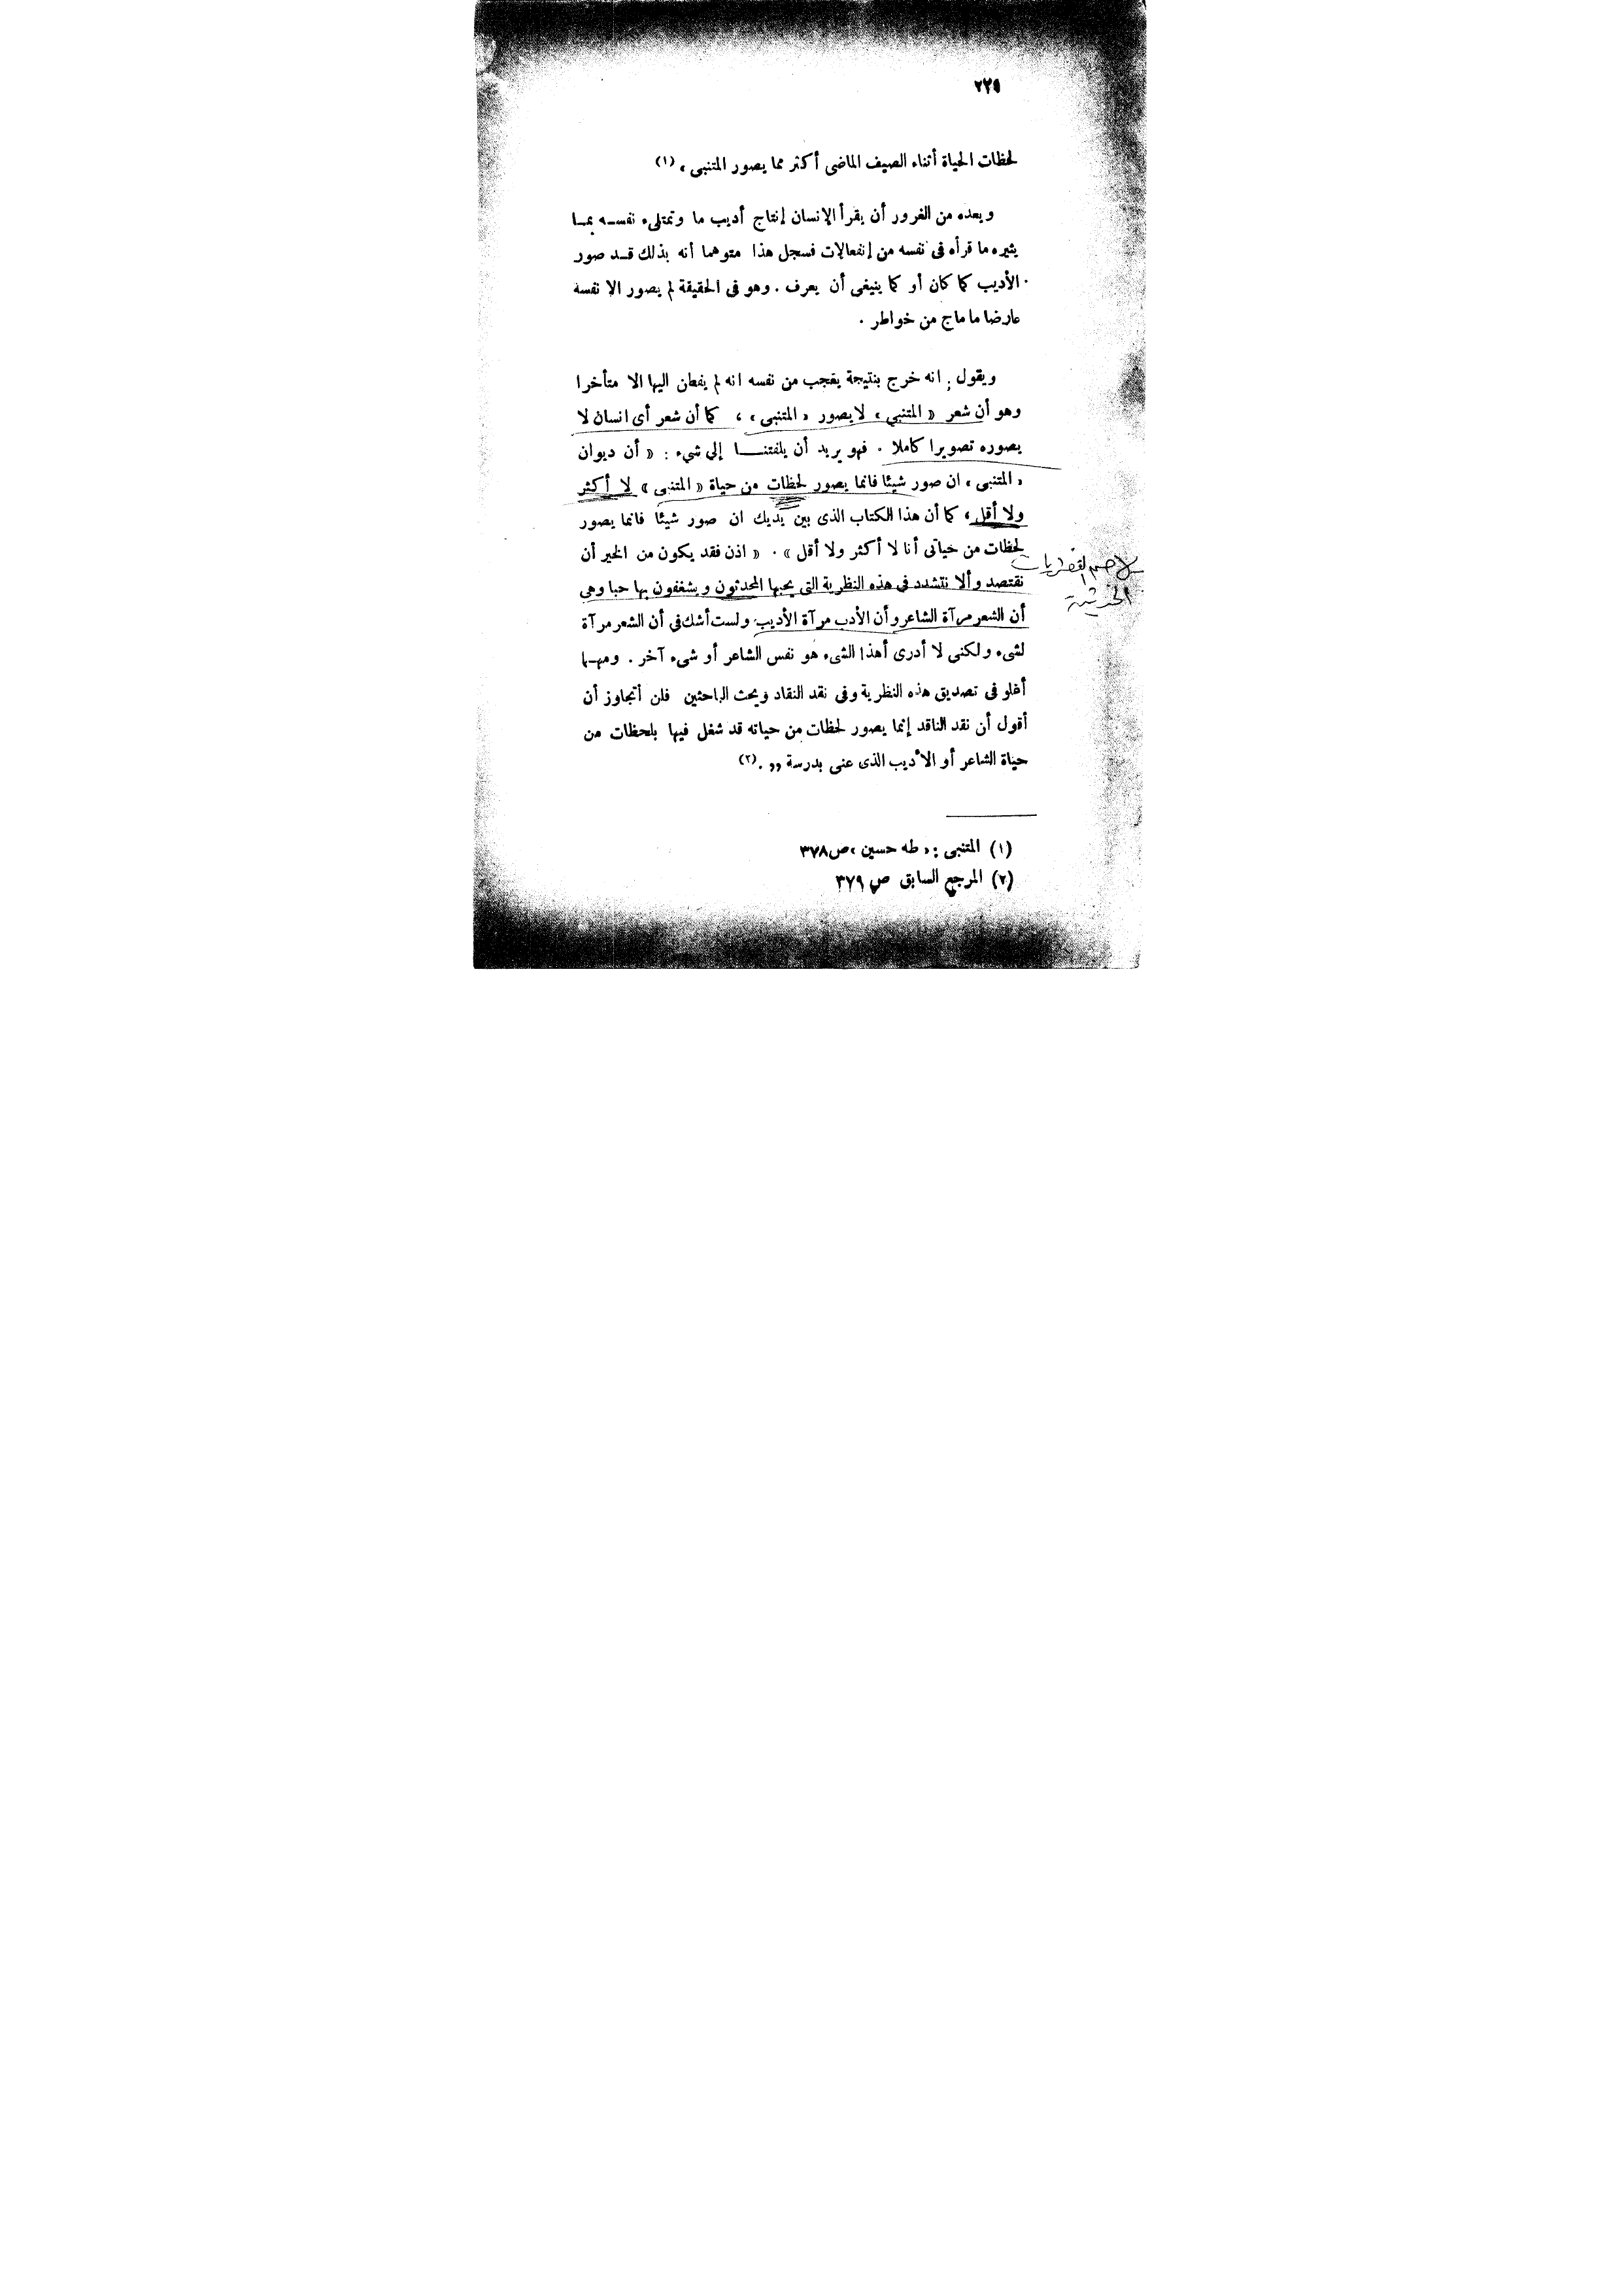 ٢٢٥
لحظات الحياة أثناء الصيف الماضى أكثر مما يصور المتنبى » (١)
ويعده من الغرور أن يقرأ الإنسان إنتاج أديب ما وتمتلىء نفسه بما
يثيره ما قرأه فى نفسه من إنفعالات فسجل هذا متوهما أنه بذلك قد صور
الأديب كما كان أو كما ينبغى أن يعرف . وهو فى الحقيقة لم يصور الا نفسه
عارضا ما ماج من خواطر .
ويقول : انه خرج بنتيجة يعجب من نفسه انه لم يفطن اليها الا متأخرا
وهو أن شعر « المتنبى » لا يصور « المتنبى » ، كما أن شعر أى انسان لا
يصوره تصويرا كاملا . فهو يريد أن يلفتنا إلى شىء : « أن ديوان
« المتنبى » ان صور شيئا فانما يصور لحظات من حياة « المتنبى » لا أكثر
ولا أقل ، كما أن هذا الكتاب الذى بين يديك ان صور شيئا فانما يصور
لحظات من حياتى أنا لا أكثر ولا أقل » . « اذن فقد يكون من الخير أن
نقتصد وألا نتشدد فى هذه النظرية التى يحبها المحدثون ويشغفون بها حبا وهى
أن الشعر مرآة الشاعر وأن الأدب مرآة الأديب . ولست أشك فى أن الشعر مرآة
لشىء ولكنى لا أدرى أهذا الشىء هو نفس الشاعر أو شىء آخر . ومهما
أغلو فى تصديق هذه النظرية وفى نقد النقاد وبحث الباحثين فلن أتجاوز أن
أقول أن نقد الناقد إنما يصور لحظات من حياته قد شغل فيها بلحظات من
حياة الشاعر أو الأديب الذى عنى بدرسة ,, . (٢)
(١) المتنبى : « طه حسين » ص ٣٧٨
(٢) المرجع السابق ص ٣٧٩